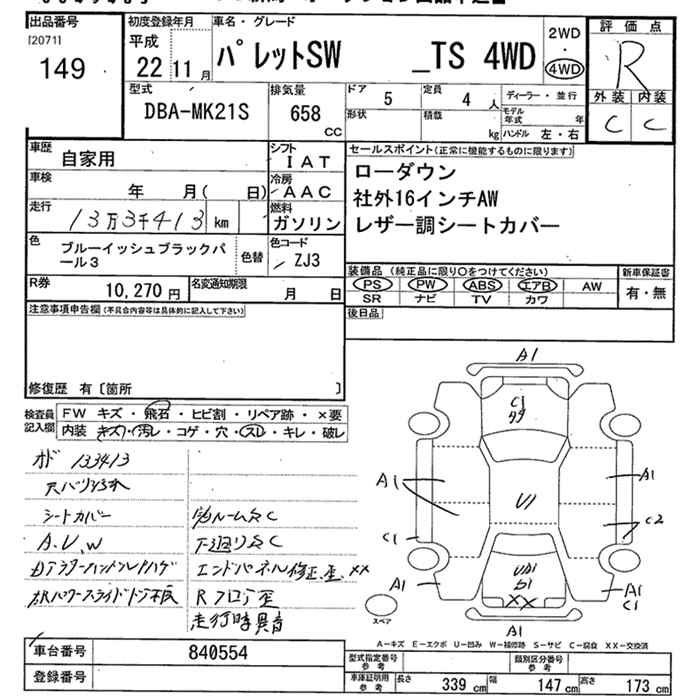 出品番号 初度登録年月 車名・グレード 2WD 評価点
[2071] 平成 ・
149 22 11月 パレットSW _TS 4WD 4WD R
型式 排気量 ドア 定員 ディーラー・並行 外装 内装
DBA-MK21S 658 CC 5 4人 C C
形状 積載 kg モデル年式 年
ハンドル 左・右
車歴 シフト セールスポイント(正常に機能するものに限ります)
自家用 IAT ローダウン
車検 年 月( 日) 冷房 AAC 社外16インチAW
走行 13万3千413 km 燃料 ガソリン レザー調シートカバー
色 ブルーイッシュブラックパール3 色替 色コード ZJ3
装備品 (純正品に限り○をつけてください) 新車保証書
PS PW ABS エアB AW 有・無
R券 10,270円 名変通知期限 月 日 SR ナビ TV カワ
注意事項申告欄(不具合内容等は具体的に記入して下さい) 後日品
修復歴 有〔箇所 〕
検査員記入欄 FW キズ・飛石・ヒビ割・リペア跡・×要
内装 キズ・汚レ・コゲ・穴・スレ・キレ・破レ
133413
シートカバー
A.V.W
エンドパネル修正、歪、XX
Rフロア歪
走行時異音
A1
C1
A1 U1 A1
C2
C1
A1 A1
C1
XX
A1
スペア
A-キズ E-エクボ U-凹み W-補修跡 S-サビ C-腐食 XX-交換済
車台番号 840554 型式指定番号 参考 類別区分番号 参考
登録番号 車庫証明用 参考 長さ 339cm 幅 147cm 高さ 173cm